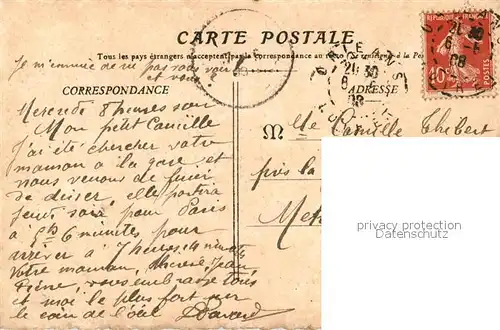 CARTE POSTALE
Tous les pays étrangers n'acceptent pas la correspondance au recto (Se renseigner à la Poste)
Je m'ennuie de ne pas vous voir
et vous
CORRESPONDANCE
ADRESSE
Mercredi 8 heures soir
Mon petit Camille
J'ai été chercher votre
maman à la gare et
nous venons de finir
de dîner, elle partira
jeudi soir pour Paris
à 5h 6 minutes pour
arriver à 7 heures 14 minutes
Votre maman, Thérèse, Jean
Pierre, vous embrasse tous
et moi le plus fort sur
le coin de l'œil
M lle Camille Thibert
près la
10c
POSTES
privacy protection
Datenschutz